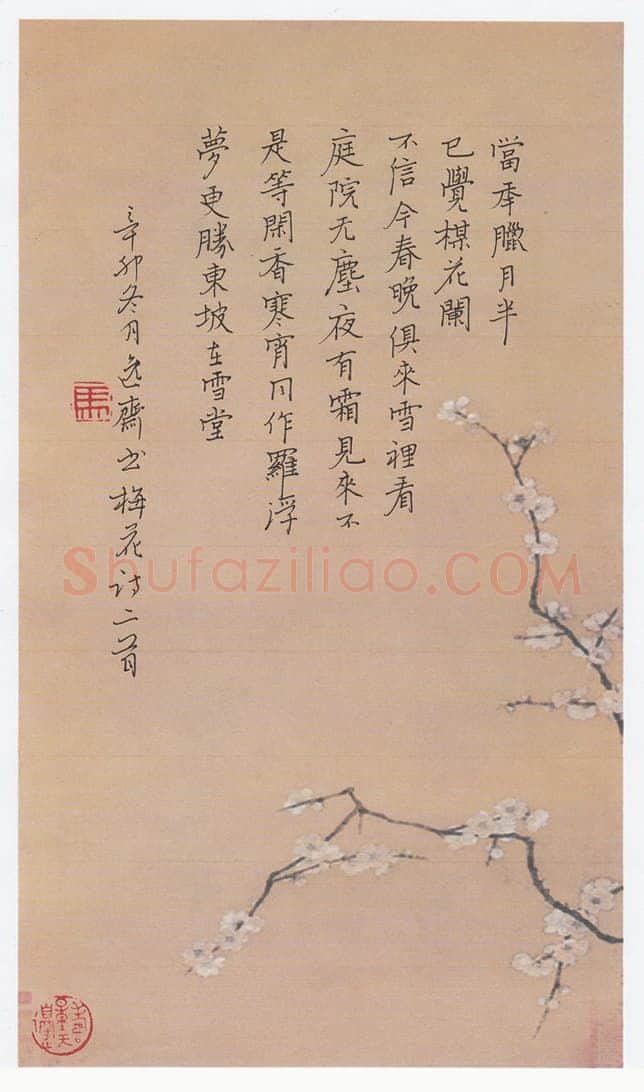 當秊臘月半
已覺楳花闌
不信今春晚俱來雪裡看
庭院无塵夜有霜見來不
是等閑香寒宵同作羅浮
夢更勝東坡在雪堂
辛卯冬月逸齋书梅花诗二首
馬
Shufaziliao.COM